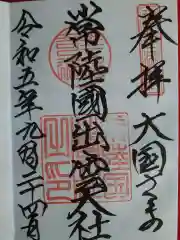 奉拝
大国さまの
常陸國出雲大社
令和五年九月二十四日